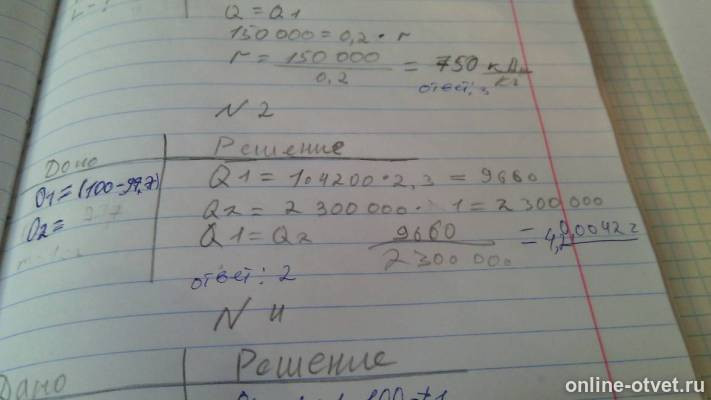 Q = Q1
150 000 = 0,2 · r
r = 150 000 / 0,2 = 750 кДж/кг
ответ: 3
N 2
Дано
Решение
Q1 = (100-99,7)
Q2 =
Q1 = 1·4200·2,3 = 9660
Q2 = 2 300 000 · 1 = 2 300 000
Q1 = Q2 9660 / 2300 000 = 0,0042 г
4,2
ответ: 2
N 4
Дано
Решение
online-otvet.ru